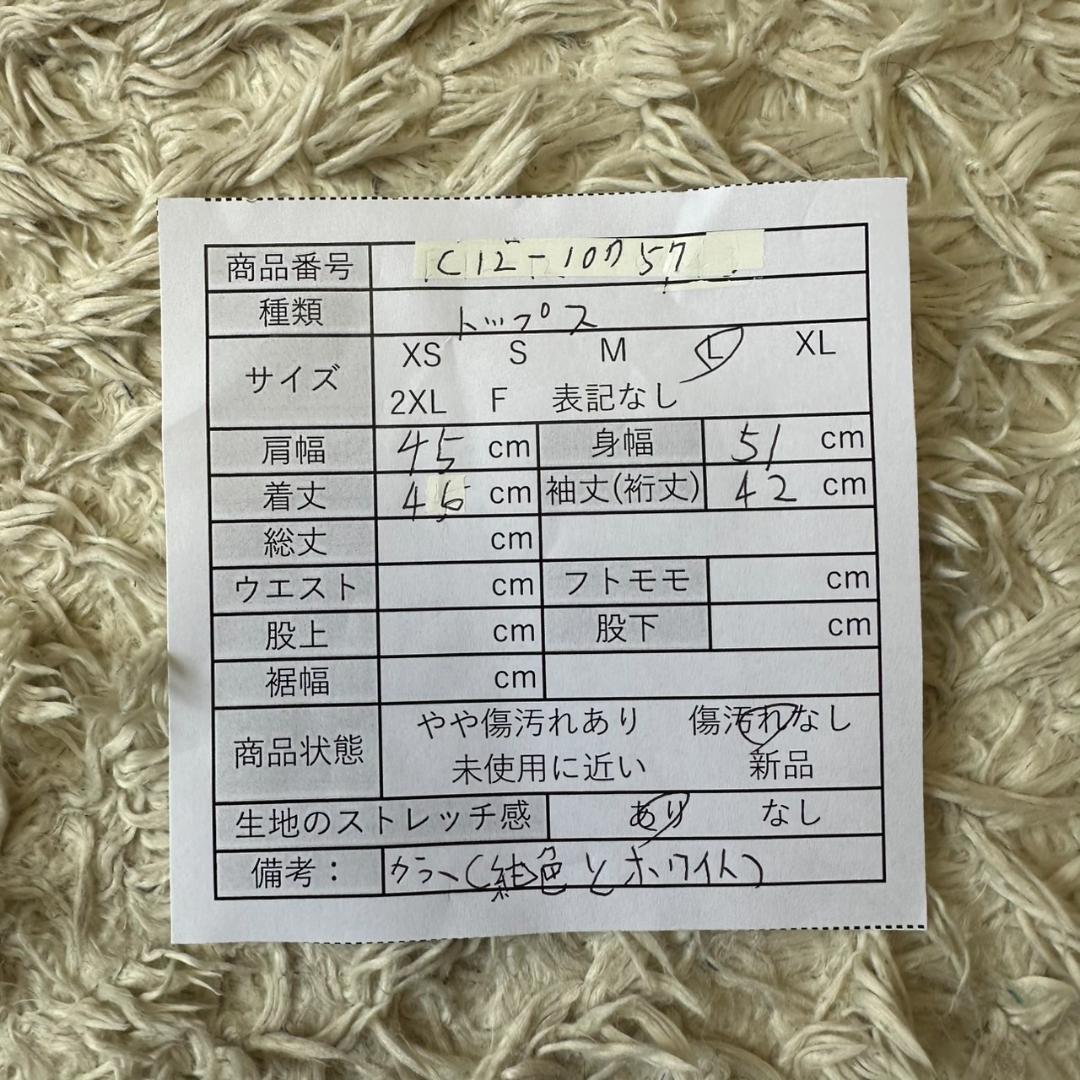 商品番号 C12-10757
種類 トップス
サイズ XS S M L XL
2XL F 表記なし
肩幅 45 cm 身幅 51 cm
着丈 46 cm 袖丈(裄丈) 42 cm
総丈 cm
ウエスト cm フトモモ cm
股上 cm 股下 cm
裾幅 cm
商品状態 やや傷汚れあり 傷汚れなし
未使用に近い 新品
生地のストレッチ感 あり なし
備考： カラー(紺色とホワイト)